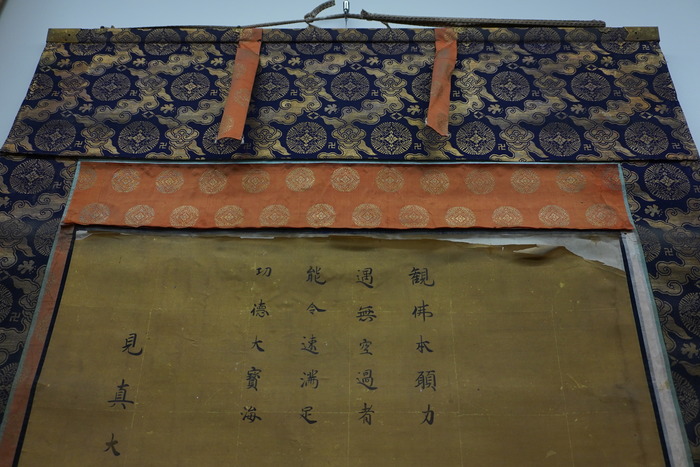 観佛本願力
遇無空過者
能令速満足
功德大寶海
見真大